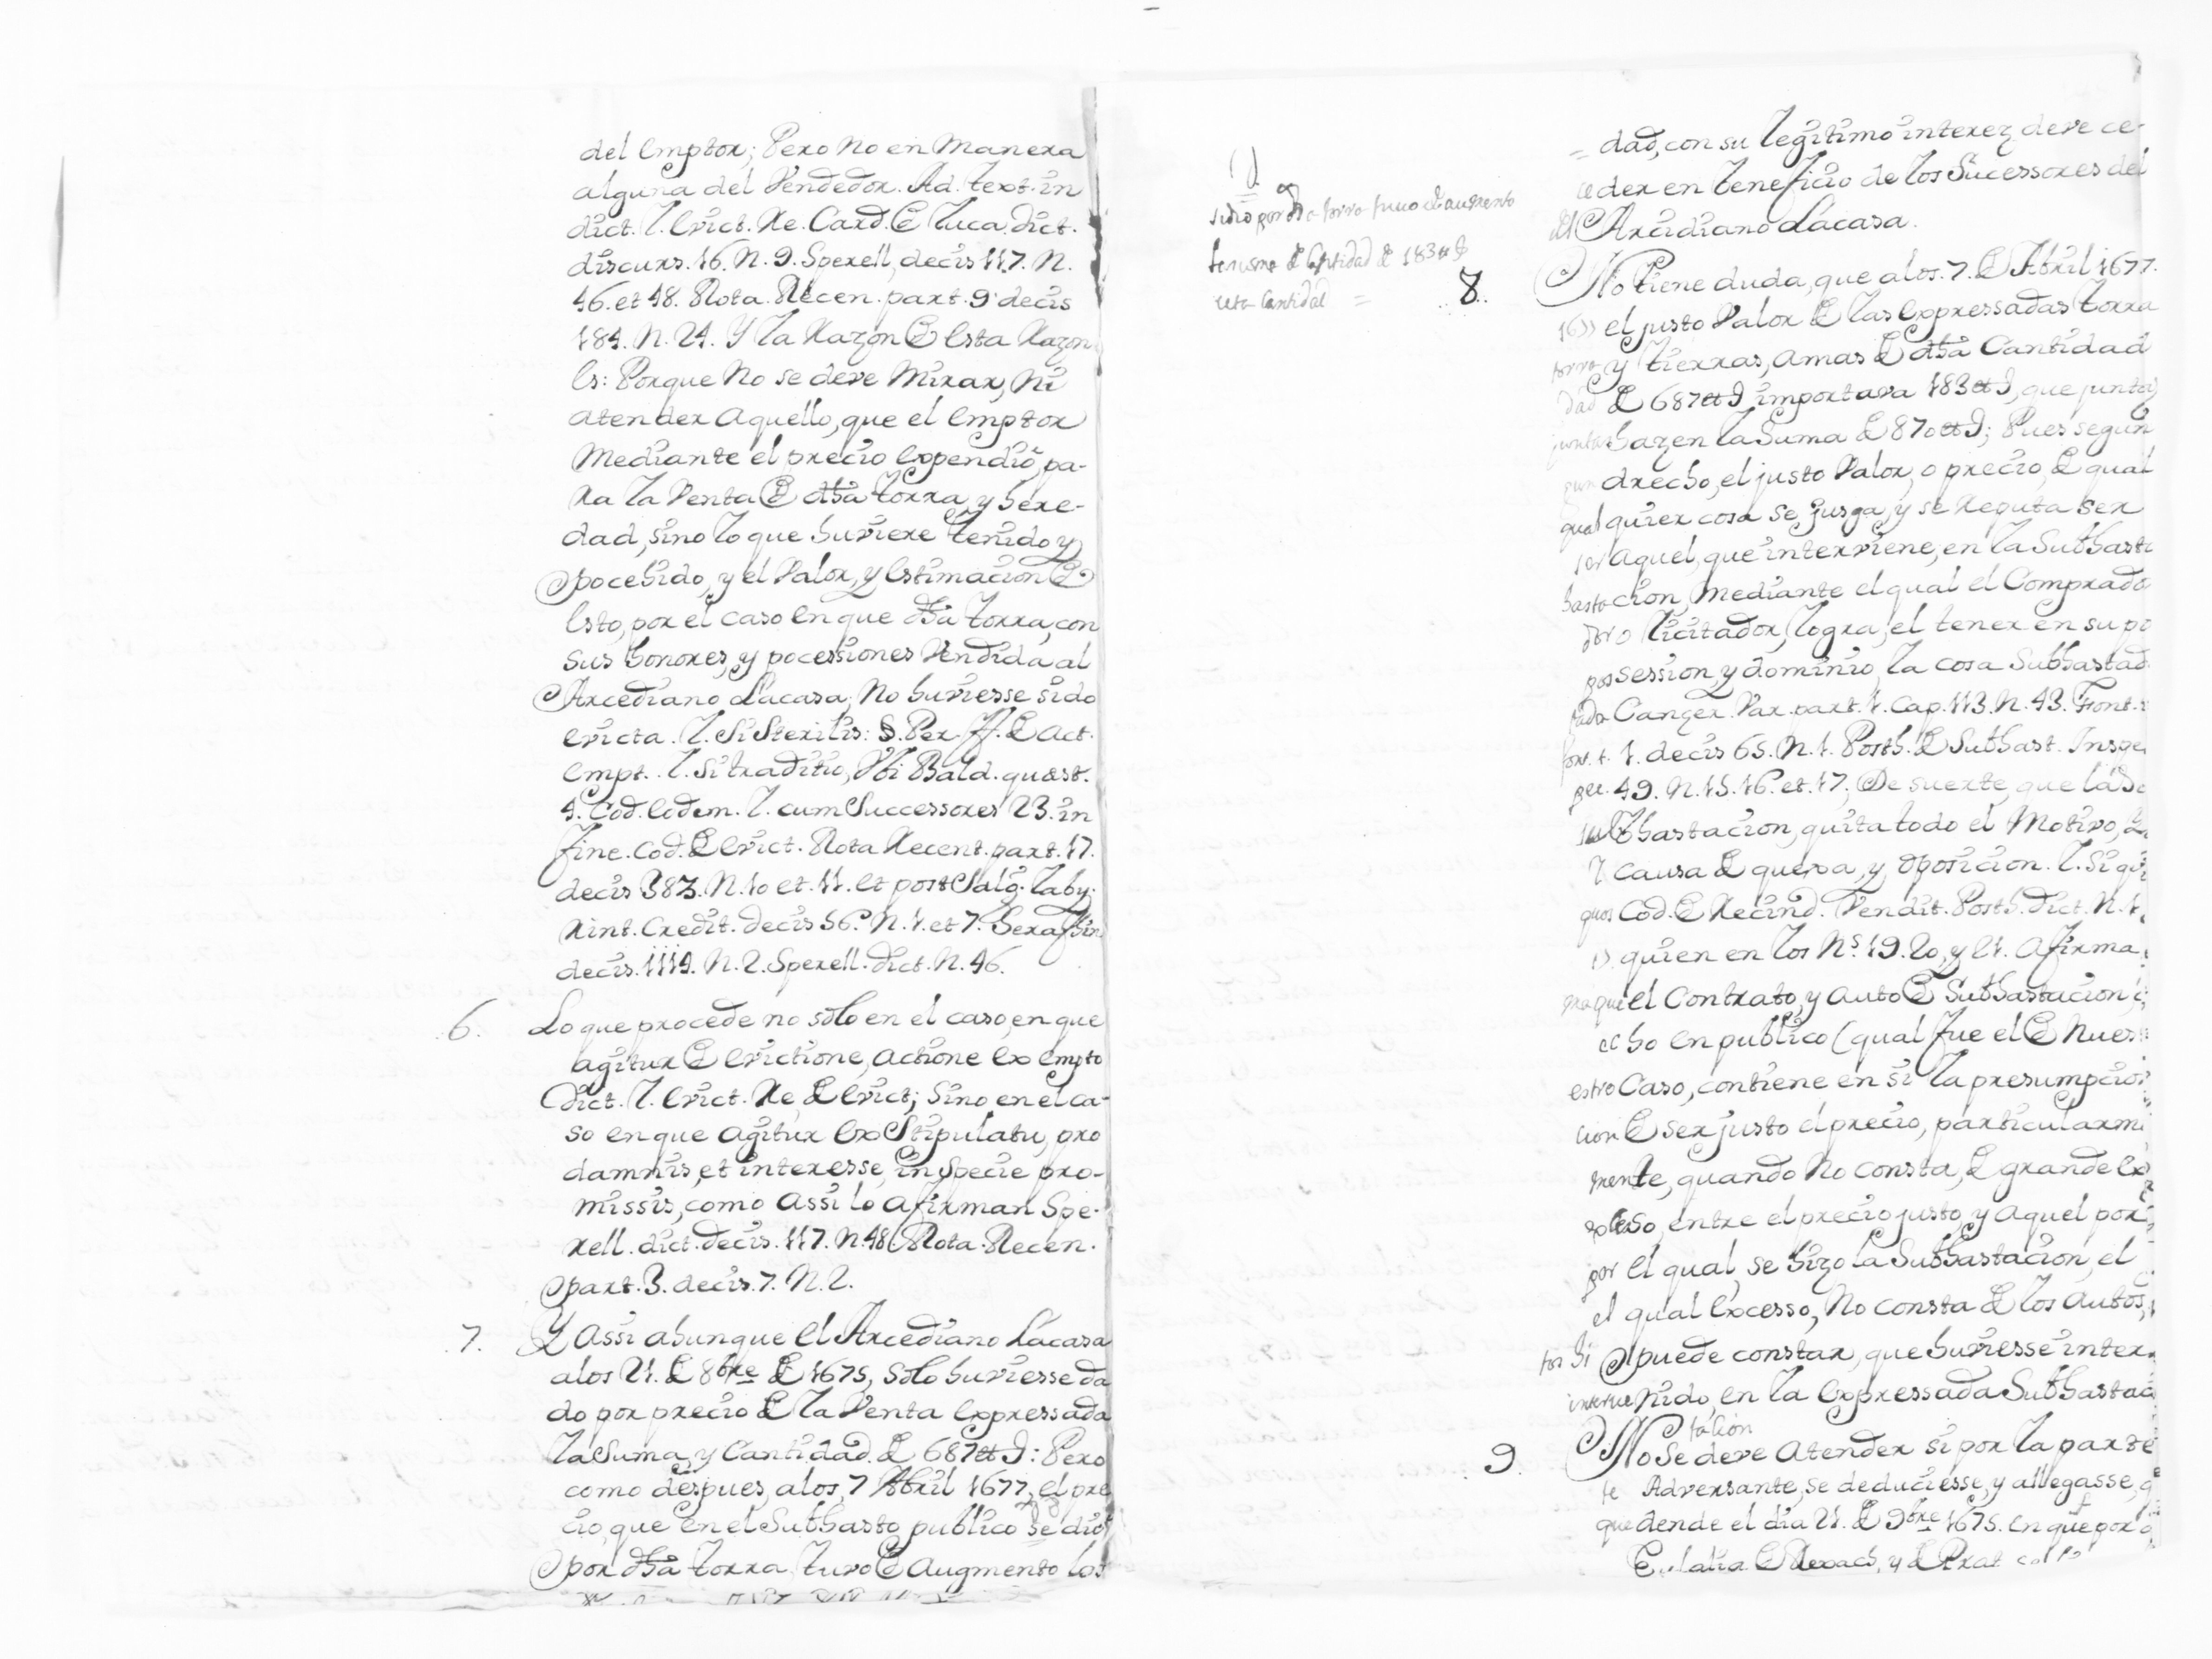 del Emptor; Pero no en Manera
alguna del Vendedor. Ad. text. in
dict. l. Evict. Re. Card. de Luca. dict.
discurs. 16. N. 9. Sperell, decis 117. N.
46. et 48. Rota. Recen. part. 9. decis
184. N. 24. Y la Razon de esta Razon
Es: Porque No se deve Mirar, Ni
atender aquello, que el Emptor
Mediante el precio expendió, pa-
ra la Venta de dha torra, y here-
dad, sino lo que huviere tenido y
pocehido, y el Valor, y Estimacion de
Esto, por el caso en que dha torra, con
sus honores, y pocessiones Vendida al
Arcediano Lacasa, No huviesse sido
evicta. l. Si Sterilis: §. Per. ff. de act.
empt. l. Si traditio, Vbi Bald. quæst.
4. Cod. Eodem. l. cum Successores 23. in
fine. Cod. de Evict. Rota Recent. part. 17.
decis 383. N. 10 et. 11. et post Salg. Laby-
rint. Credit. decis 56. N. 1. et 7. Seraphin
decis. 1114. N. 2. Sperell. dict. N. 46.
6. Lo que procede no solo en el caso, en que
agitur de Evictione, actione ex empto
dict. l. Evict. Re, de Evict; Sino en el ca-
so en que agitur Ex Stipulatu, pro
damnis, et interesse, in specie pro-
missis, como assi lo afirman Spe-
rell. dict. decis. 117. N. 48. Rota. Recen.
part. 3. decis. 7. N. 2.
7. Y assi ahunque el Arcediano Lacasa
a los 21. de 8bre de 1675, solo huviesse da
do por precio de la Venta expressada
la Suma, y Cantidad de 687 ℔ S: Pero
como despues, a los, 7 Abril 1677, el pre
cio, que en el Subhasto publico se dió
por dha torra, tuvo de augmento los
= dad, con su legitimo interez, deve ce-
ceder en beneficio de los Sucessores del
del Arcidiano Lacasa.
(1)
sidio por dha torra tuvo de aumento
la Cantidad de 183 ℔ S
esta Cantidad =
8. No tiene duda, que a los. 7. de Abril 1677.
el justo Valor de las Expressadas torra
torra y tierras, a mas de dha Cantidad
dad de 687 ℔ S importava 183 ℔ S, que juntas
juntas hazen la Suma de 870 ℔ S; Pues segun
gun drecho, el justo Valor, o precio, de qual
qual quier cosa se jusga, y se Reputa ser
ser aquel, que interviene, en la Subhasta
hasta cion, Mediante el qual el Comprado
dor o licitador, logra, el tener en su po
possession y dominio, la cosa Subhastad
tada Cancer. Var. part. 1. Cap. 113. N. 43. Font.
font. t. 1. decis 65. N. 1. Posth. de Subhast. Inspe
pec. 49. N. 15. 16. et. 17; De suerte, que la Su
subhastacion, quita todo el Motivo, y
y causa de quexa, y oposicion. l. Si quo
quos Cod. de Recind. Vendit. Posth. dict. N. 1.
quien en los Ns. 19. 20, y 21. Afirma,
que el Contrato, y auto de Subhastacion
echo en publico (qual fue el de Nues
estro Caso, contiene en si la presumpcion
cion de ser justo el precio, particularmi
mente, quando No consta, de grande Ex
exceso, entre el precio justo, y aquel por
por el qual, se hizo la Subhastacion, el
el qual Excesso, No consta de los autos,
tos Ni puede constar, que huviesse inter
intervenido, en la Expressada Subhastac
tacion
9. No se deve atender si por la parte
te Adversante, se deduciesse, y allegasse, q
que dende el dia 21. de 9bre 1675. en que por
Eulalia de Rexach, y de Prat